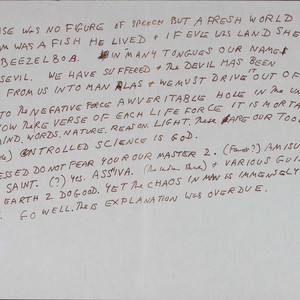 SE WAS NO FIGURE OF SPEECH BUT A FRESH WORLD
M WAS A FISH HE LIVED + IF EVE WAS LAND SHE
BEEZELBOA. IN MANY TONGUES OUR NAME
SEVIL. WE HAVE SUFFERED + THE DEVIL HAS BEEN
FROM US INTO MAN ALAS + WE MUST DRIVE OUT OF
TO THE NEGATIVE FORCE A VERITABLE HOLE IN THE
OW THERE VERSE OF EACH LIFE FORCE IT IS MORTA
IND, WORDS, NATURE, REASON, LIGHT. THESE ARE OUR TOO
CONTROLLED SCIENCE IS GOD.
ESSED DO NOT FEAR YOUR OUR MASTER 2. AM I SU
SAINT. (?) YES. ASSIVA. + VARIOUS GU
EARTH 2 DO GOOD. YET THE CHAOS IN MAN IS IMMENSELY
GO WELL. THIS EXPLANATION WAS OVERDUE.